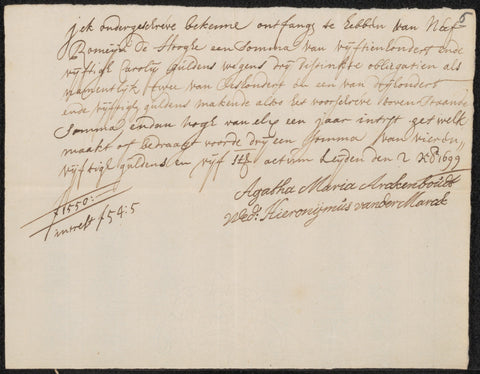 6
jck ondergeschreve bekenne ontfangs te hebben van Neef
Romeyn de Hooghe een Somma van vyftienhondert ende
vyftigh Caroly guldens wegens dry distinkte obligatien als
namentlyk twee van seshondert en een van dryhondert
ende vyftigh guldens makende alsoo het voorschreve bovenstaande
Somma, en dan nogh van elx een jaar intrest get welk
maakt of bedraagt voorde dry een somma van vieren
vyftigh guldens en vyf st actum Leyden den 2 1699
Agatha Maria Arakenboudt
Wed. Hieronijmus vander Marck
f1550:
intrest f54:5